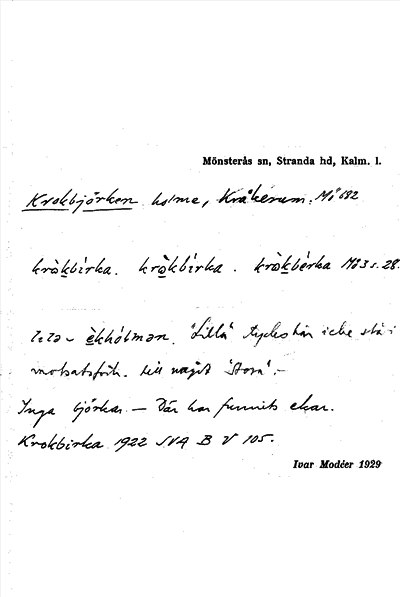 Mönsterås sn, Stranda hd, Kalm. l.
Krokbjörken holme, Kråkerum. Mö 692
kròkbírka. kròkbírka. kròkbérka Mö 3 s. 28.
èkhólmən. "Lilla" tycks här icke stå i
motsatsförh. till något "Stora".-
Inga björkar. - Där har funnits ekar.
Krokbirka 1922 SVA B V 105.
Ivar Modéer 1929